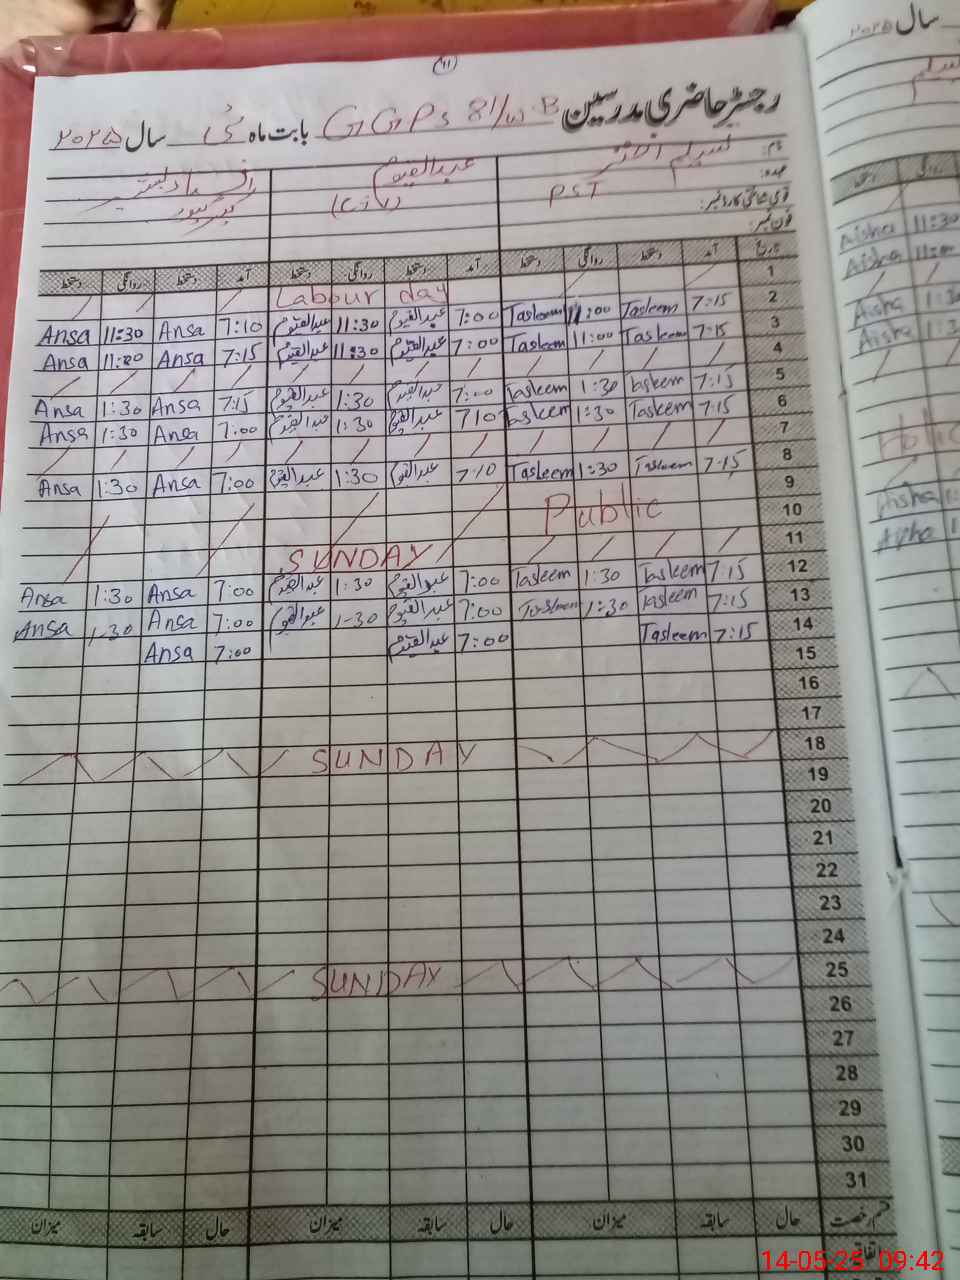 (11)
رجسٹر حاضری مدرسین GGPS 81/W-B بابت ماہ مئی سال ۲۰۲۵
نام: تسلیم اختر عبدالقیوم
عہدہ: PST (C-IV)
قومی شناختی کارڈ نمبر:
فون نمبر:
تاریخ آمد دستخط روانگی دستخط آمد دستخط روانگی دستخط آمد دستخط روانگی دستخط
1 Labour day
2 7:15 Tasleem 11:00 Tasleem 7:00 عبدالقیوم 11:30 عبدالقیوم 7:10 Ansa 11:30 Ansa
3 7:15 Tasleem 11:00 Tasleem 7:00 عبدالقیوم 11:30 عبدالقیوم 7:15 Ansa 11:00 Ansa
4
5 7:15 Tasleem 1:30 Tasleem 7:00 عبدالقیوم 1:30 عبدالقیوم 7:15 Ansa 1:30 Ansa
6 7:15 Tasleem 1:30 Tasleem 710 عبدالقیوم 1:30 عبدالقیوم 7:00 Ansa 1:30 Ansa
7
8 7:15 Tasleem 1:30 Tasleem 7:10 عبدالقیوم 1:30 عبدالقیوم 7:00 Ansa 1:30 Ansa
9
10 Public
11 SUNDAY
12 7:15 Tasleem 1:30 Tasleem 7:00 عبدالقیوم 1:30 عبدالقیوم 7:00 Ansa 1:30 Ansa
13 7:15 Tasleem 1:30 Tasleem 7:00 عبدالقیوم 1-30 عبدالقیوم 7:00 Ansa 1-30 Ansa
14 7:15 Tasleem 7:00 عبدالقیوم 7:00 Ansa
15
16
17
18 SUNDAY
19
20
21
22
23
24
25 SUNDAY
26
27
28
29
30
31
قسم رخصت حال سابقہ میزان حال سابقہ میزان حال سابقہ میزان
اتفاقیہ
سال ۲۰۲۵
روانگی دستخط
Aisha 11:30
Aisha 11:00
Aisha 1:3
Aisha 1:3
Aisha 1:
Aisha 1
14-05-25 09:42